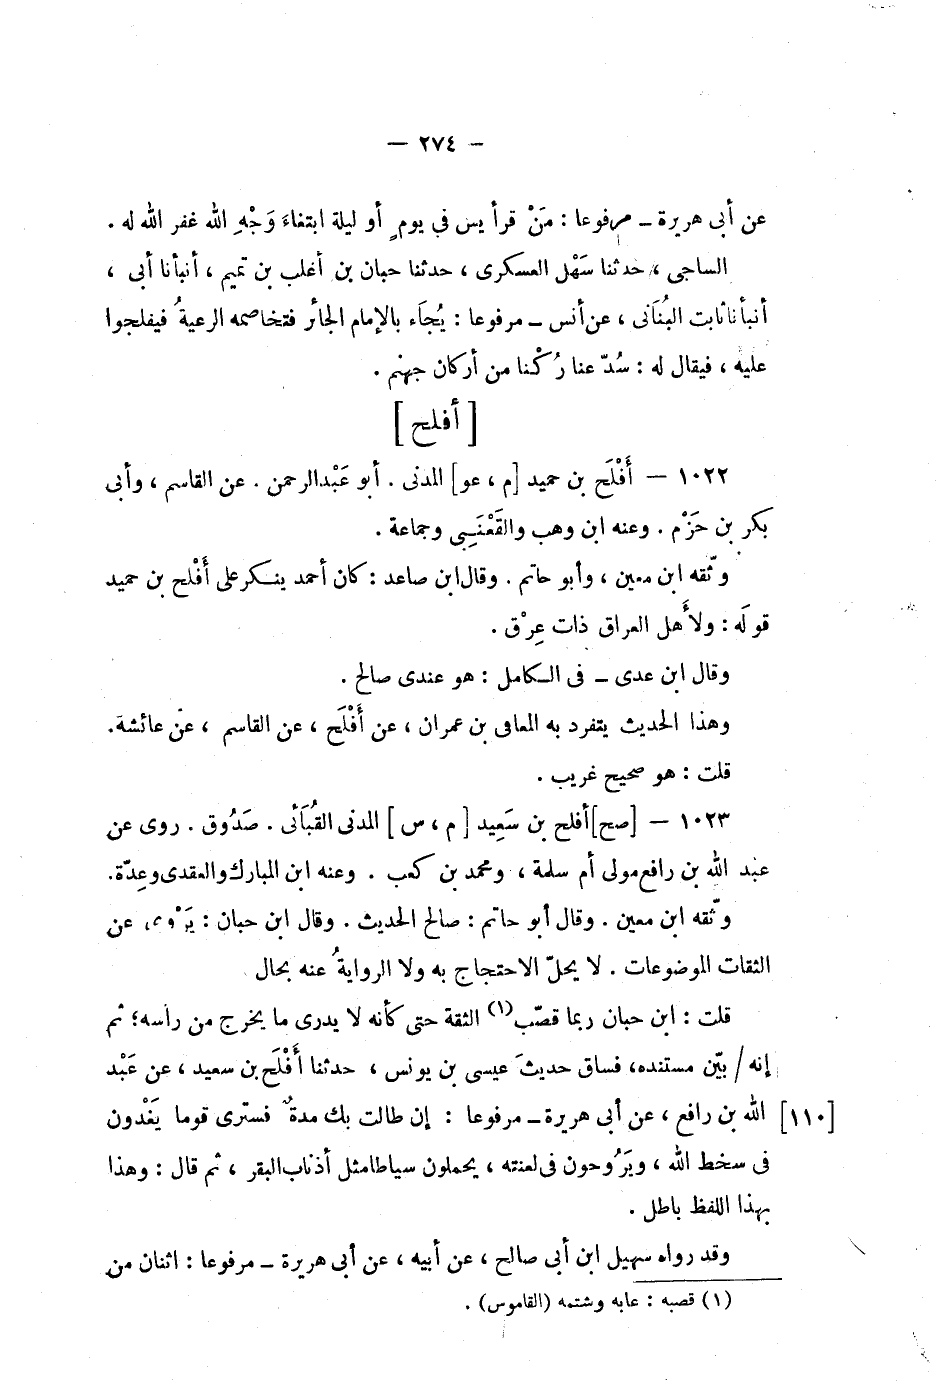 — ٢٧٤ —
عن أبى هريرة – مرفوعا : مَنْ قرأ يس في يومٍ أو ليلة ابتغاءَ وَجْهِ الله غفر الله له .
الساجى ، حدثنا سَهْل العسكرى ، حدثنا حبان بن أغلب بن تميم ، أنبأنا أبى ،
أنبأنا ثابت البُنَانى ، عن أنس – مرفوعا : يُجَاء بالإمام الجائر فتخاصمه الرعيةُ فيفلجوا
عليه ، فيقال له : سُدّ عنا رُكْنا من أركان جهنم .
[ أفلح ]
١٠٢٢ — أَفْلَح بن حميد [م ، عو] المدنى . أبو عَبْد الرحمن . عن القاسم ، وأبى
بكر بن حَزْم . وعنه ابن وهب والقَعْنَبِى وجماعة .
وثّقه ابن معين ، وأبو حاتم . وقال ابن صاعد : كان أحمد ينكر على أَفْلح بن حميد
قولَه : ولأَهل العراق ذات عِرْق .
وقال ابن عدى – فى الكامل : هو عندى صالح .
وهذا الحديث يتفرد به المعافى بن عمران ، عن أَفْلَح ، عن القاسم ، عن عائشة.
قلت : هو صحيح غريب .
١٠٢٣ — [صح] أفلح بن سَعِيد [ م ، س ] المدنى القُبَائى . صَدُوق . روى عن
عبد الله بن رافع مولى أم سلمة ، ومحمد بن كعب . وعنه ابن المبارك والعقدى وعِدّة.
وثّقه ابن معين . وقال أبو حاتم : صالح الحديث . وقال ابن حبان : يَرْوى عن
الثقات الموضوعات . لا يحلّ الاحتجاج به ولا الروايةُ عنه بحال
قلت : ابن حبان ربما قصّب(١) الثقة حتى كأنه لا يدرى ما يخرج من رأسه؛ ثم
إنه / بيّن مستنده، فساق حديثَ عيسى بن يونس ، حدثنا أَفْلَح بن سعيد ، عن عَبْد
[١١٠] الله بن رافع ، عن أبى هريرة – مرفوعا : إن طالت بك مدةٌ فسترى قوما يَغْدون
فى سخط الله ، ويَرُوحون فى لعنته ، يحملون سياطا مثل أذناب البقر ، ثم قال : وهذا
بهذا اللفظ باطل .
وقد رواه سهيل ابن أبى صالح ، عن أبيه ، عن أبى هريرة – مرفوعا : اثنان من
(١) قصبه : عابه وشتمه (القاموس) .